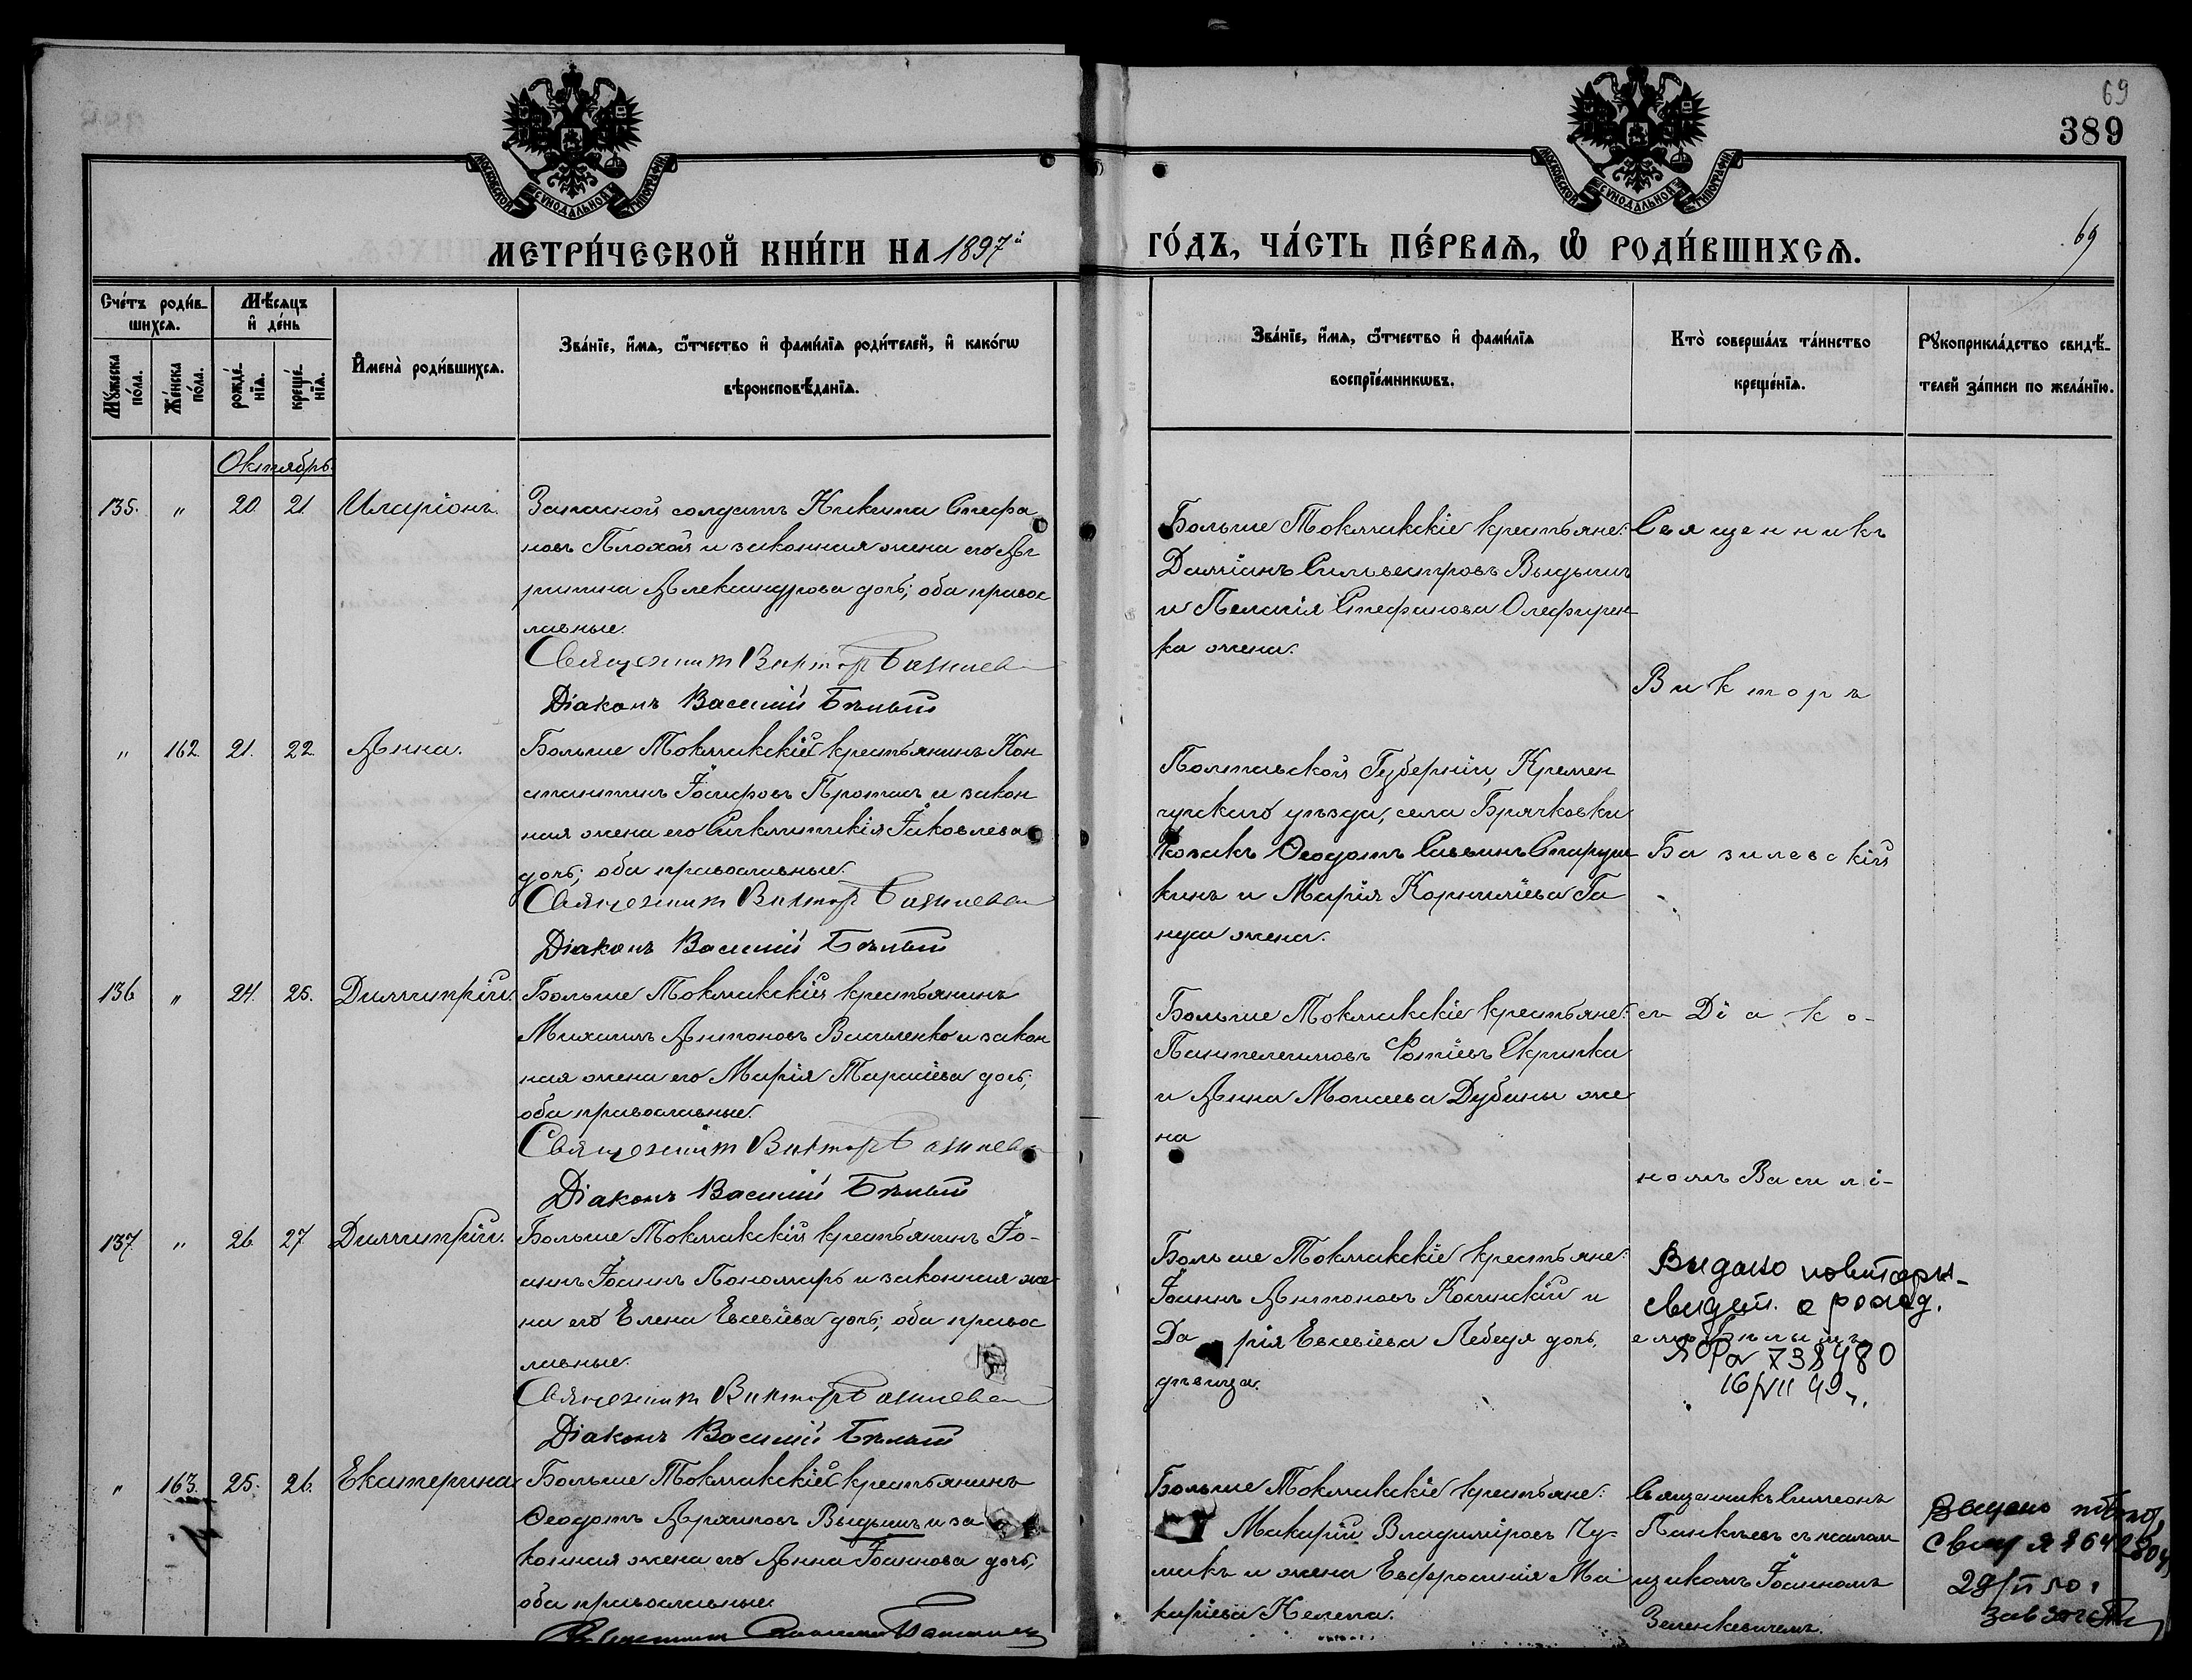 69
389
69
МОСКОВСКОЙ СѴНОДАЛЬНОЙ ТИПОГРАФІИ
МОСКОВСКОЙ СѴНОДАЛЬНОЙ ТИПОГРАФІИ
МЕТРИ́ЧЕСКОЙ КНИ́ГИ НА 1897й
ГО́ДЪ, ЧА́СТЬ ПЕ́РВАѦ, Ѡ РОДИ́ВШИХСѦ.
Счétъ роди́в-
шихсѧ.
Мꙋжеска по́ла.
Же́нска по́ла.
Мѣ́сѧцъ
и҆ де́нь
рожде́-нїѧ.
креще́-нїѧ.
И҆мена̀ роди́вшихсѧ.
Зва́нїе, и҆́мѧ, ѻ҆́тчество и҆ фами́лїѧ роди́телей, и҆ како́гѡ
вѣроисповѣ́данїѧ.
Зва́нїе, и҆́мѧ, ѻ҆́тчество и҆ фами́лїѧ
воспрїе́мникѡвъ.
Кто̀ соверша́лъ та́инство
креще́нїѧ.
Рꙋкоприкла́дство свидѣ́-
телей за́писи по жела́нїю.
Октябрь
135. " 20. 21. Иларіонъ.
Запасной солдатъ Никита Стефа
новъ Плохой и законная жена его Аг
рипина Александрова дочь; оба правос
лавные.
Священник Виктор Базилев
Діаконъ Василій Бѣлый
Больше Токмакскіе крестьяне:
Даміанъ Сильвестровъ Выдыш
и Пелагія Стефанова Олефирен
ка жена.
Священникъ
Викторъ
" 162. 21. 22. Анна.
Больше Токмакскій крестьянинъ Кон
стантинъ Іосифовъ Протас и закон
ная жена его Синклитикія Іаковлева
дочь; оба православные.
Священник Виктор Базилев
Діаконъ Василій Бѣлый
Полтавской Губерніи, Кремен
чугского уѣзда, села Брячковки
козакъ Ѳеодотъ Саввинъ Старуш
кинъ и Марія Корниліева Га
нуса жена.
Базилевскій
136 " 24. 25. Димитрій.
Больше Токмакскій крестьянинъ
Михаилъ Антоновъ Василенко и закон
ная жена его Марія Тарасіева дочь;
оба православные.
Священник Виктор Базилев
Діаконъ Василій Бѣлый
Больше Токмакскіе крестьяне:
Пантелеимонъ Фотіевъ Скрипка
и Анна Моисеева Дубины же
на
съ Діако-
номъ Василі-
137. " 26. 27. Димитрій.
Больше Токмакскій крестьянинъ Іо-
аннъ Іоаннъ Пономарь и законная же-
на его Елена Евсевіева дочь; оба правос
лавные.
Священник Виктор Базилев
Діаконъ Василій Бѣлый
Больше Токмакскіе крестьяне:
Іоаннъ Антоновъ Косинскій и
Да рія Евсевіева Лебедя дочь,
дѣвица.
емъ Бѣлымъ
Видано повторн-
свидет. о рожд.
738480
16/VII 49 г.
" 163. 25. 26. Екатерина
Больше Токмакскій крестьянинъ
Ѳеодотъ Архиповъ Выдышъ и за
конная жена его Анна Іоаннова дочь,
оба православные.
Больше Токмакскіе крестьяне:
Макарій Владиміровъ Чу-
макъ и жена Евфросинія Ма
каріева Келепа.
Священникъ Симеонъ
Панкѣевъ съ псалом
щикомъ Іоанномъ
Зеленкевичемъ.
Выдано повт.
29/II 50 г